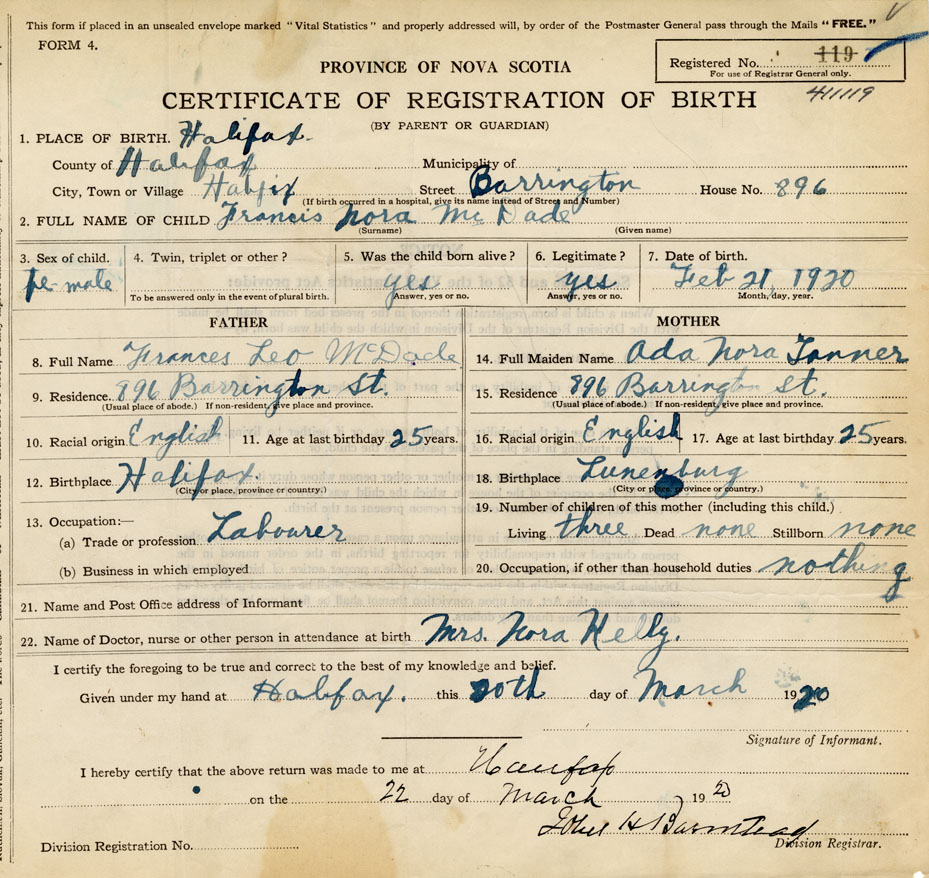 This form if placed in an unsealed envelope marked "Vital Statistics" and properly addressed will, by order of the Postmaster General pass through the Mails "FREE."
FORM 4.
Registered No. 119
For use of Registrar General only.
411119
PROVINCE OF NOVA SCOTIA
CERTIFICATE OF REGISTRATION OF BIRTH
(BY PARENT OR GUARDIAN)
1. PLACE OF BIRTH. Halifax.
County of Halifax Municipality of
City, Town or Village Halifix Street Barrington House No. 896
(If birth occurred in a hospital, give its name instead of Street and Number)
2. FULL NAME OF CHILD Francis Nora McDade
(Surname) (Given name)
3. Sex of child. 4. Twin, triplet or other? 5. Was the child born alive? 6. Legitimate? 7. Date of birth.
fe-male yes yes Feb 21, 1920
To be answered only in the event of plural birth. Answer, yes or no. Answer, yes or no. Month, day, year.
FATHER MOTHER
8. Full Name Frances Leo McDade 14. Full Maiden Name Ada Nora Tanner
9. Residence. 896 Barrington St. 15. Residence 896 Barrington St.
(Usual place of abode.) If non-resident, give place and province. (Usual place of abode.) If non-resident, give place and province.
10. Racial origin English 11. Age at last birthday 25 years. 16. Racial origin English 17. Age at last birthday 25 years.
12. Birthplace Halifax. 18. Birthplace Lunenburg
(City or place, province or country.) (City or place, province or country.)
13. Occupation:— 19. Number of children of this mother (including this child.)
(a) Trade or profession Labourer Living three Dead none Stillborn none
(b) Business in which employed 20. Occupation, if other than household duties nothing
21. Name and Post Office address of Informant
22. Name of Doctor, nurse or other person in attendance at birth Mrs. Nora Kelly.
I certify the foregoing to be true and correct to the best of my knowledge and belief.
Given under my hand at Halifax. this 20th day of March 1920
Signature of Informant.
I hereby certify that the above return was made to me at Halifax
on the 22 day of March 1920
John H Barnstead
Division Registration No. Division Registrar.